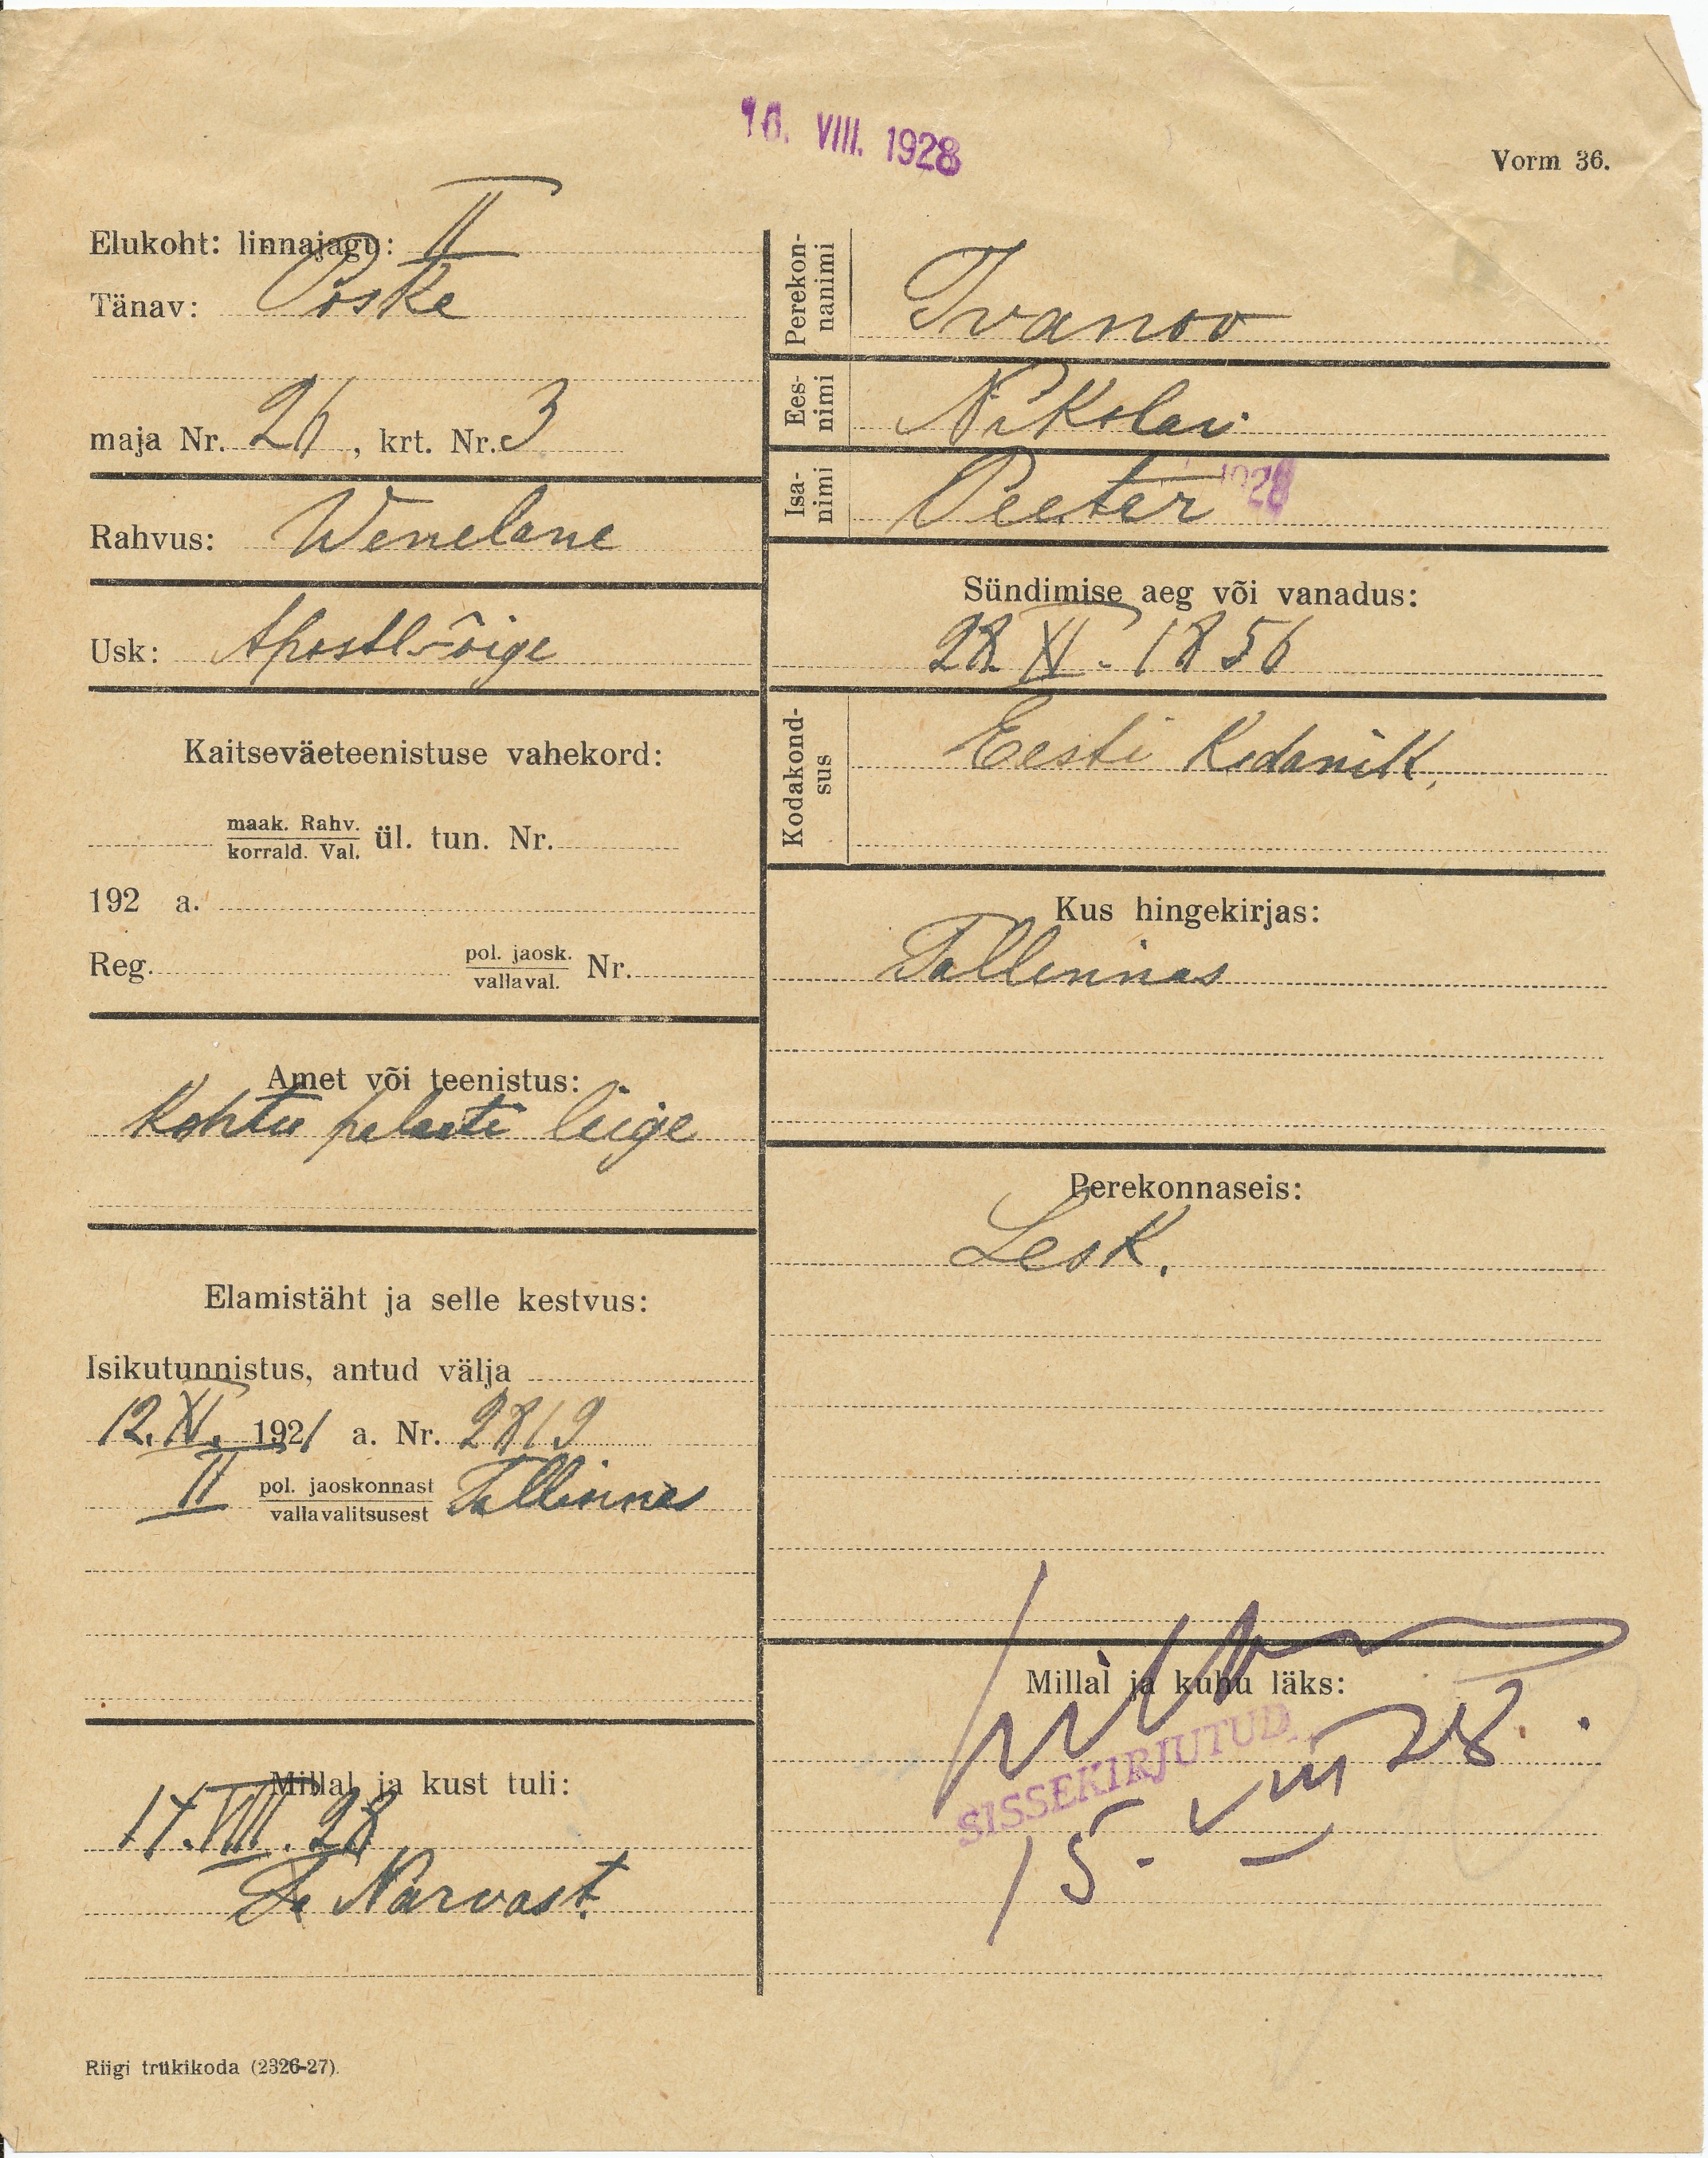 16. VIII. 1928
Vorm 36.
Elukoht: linnajagu: II
Tänav: Poska
maja Nr. 26, krt. Nr. 3
Rahvus: Wenelane
Usk: Apostl-õige
Kaitseväeteenistuse vahekord:
maak. Rahv.
korrald. Val. ül. tun. Nr.
192 a.
Reg. pol. jaosk.
vallaval. Nr.
Amet või teenistus:
Kohtu palati liige
Elamistäht ja selle kestvus:
Isikutunnistus, antud välja
12. XI. 1921 a. Nr. 2819
II pol. jaoskonnast
vallavalitsusest Tallinnas
Millal ja kust tuli:
14. VIII. 28
Narvast.
Riigi trükikoda (2326-27).
Perekon-
nanimi
Ivanov
Ees-
nimi
Nikolai
Isa-
nimi
Peeter
1928
Sündimise aeg või vanadus:
28. XI. 1856
Kodakond-
sus
Eesti kodanik.
Kus hingekirjas:
Tallinnas
Perekonnaseis:
Lesk.
Millal ja kuhu läks:
SISSEKIRJUTUD
15. VIII 28.